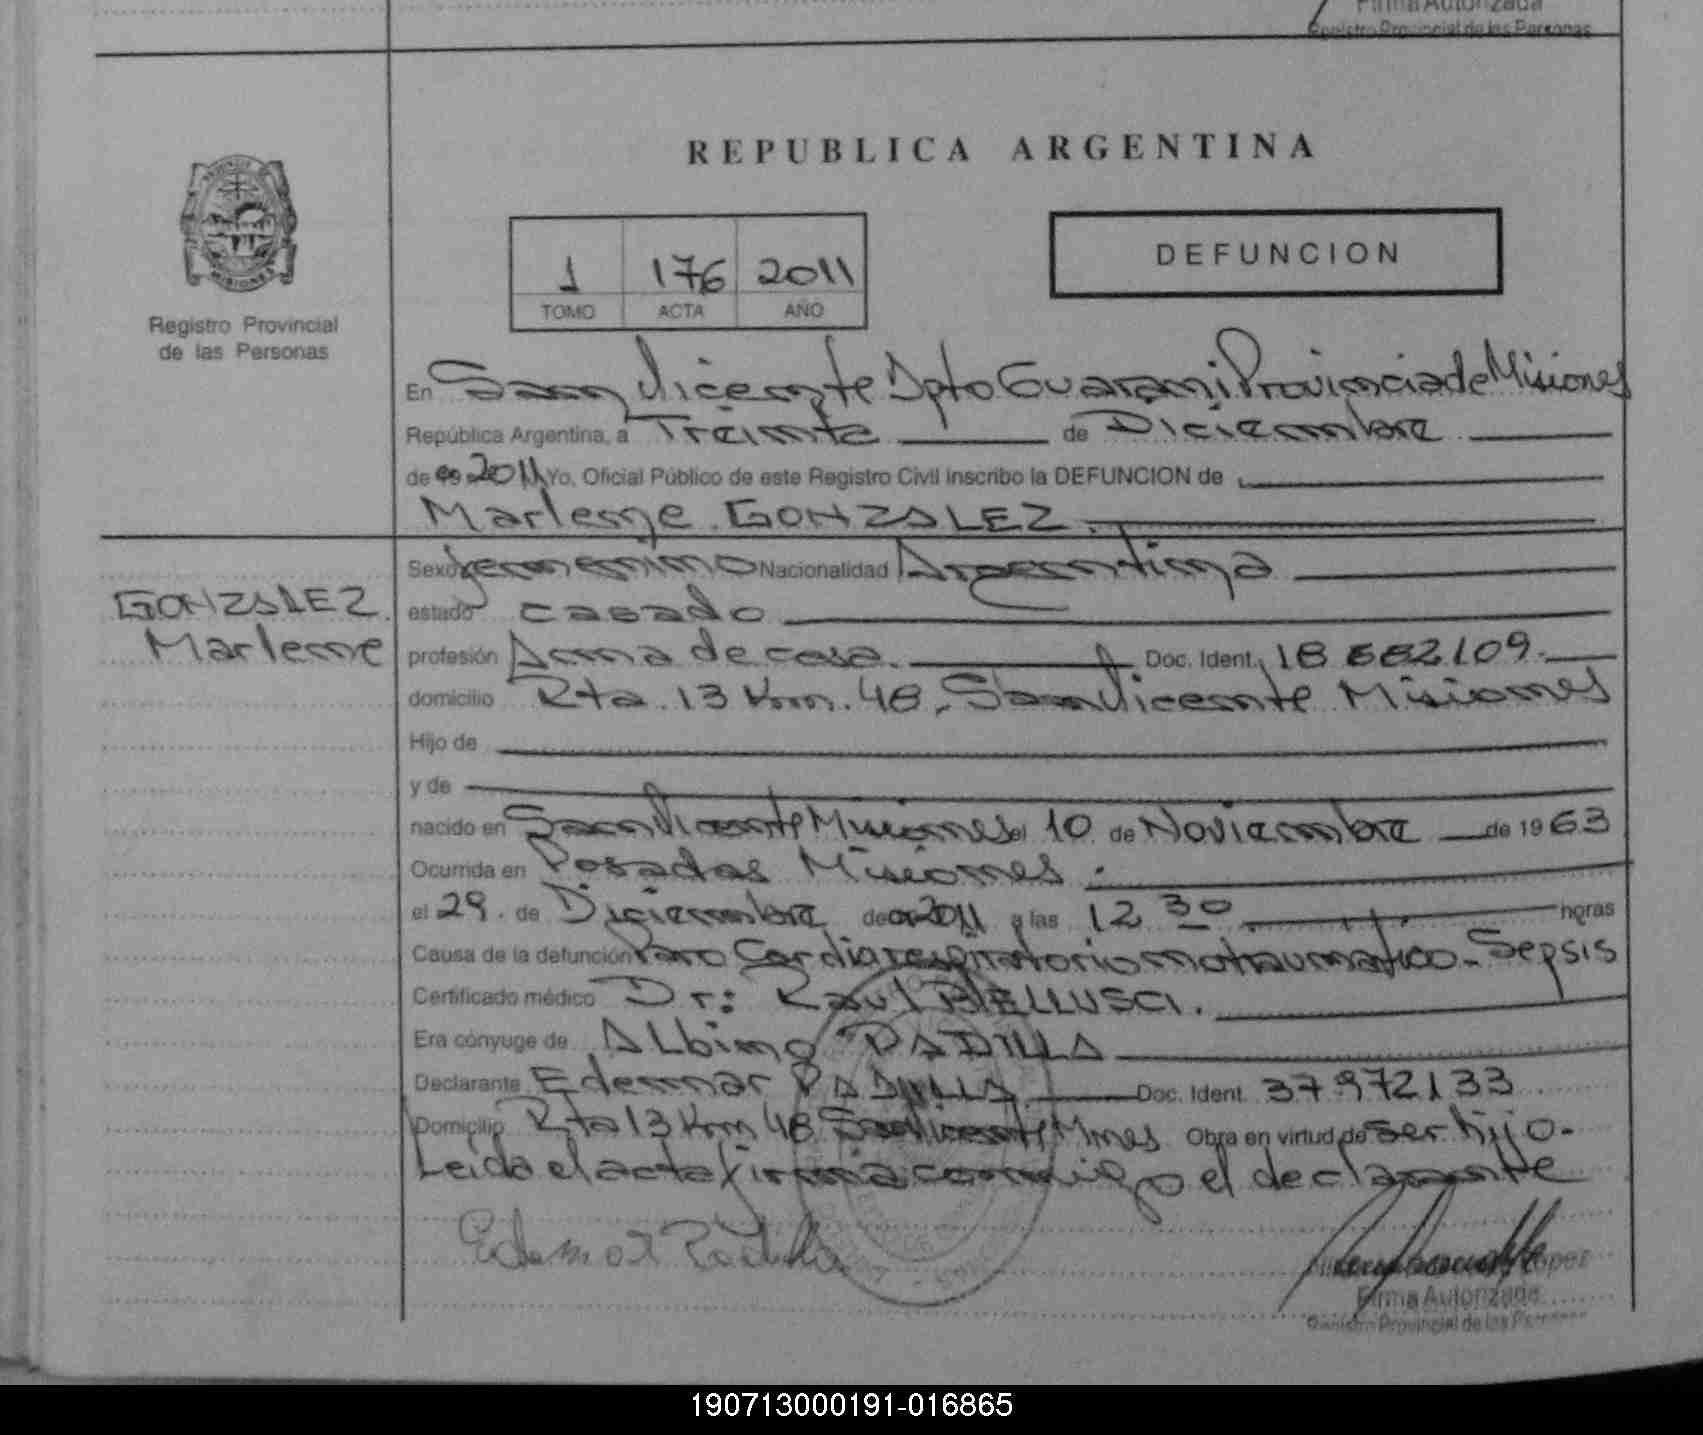 Firma Autorizada
Registro Provincial de las Personas
REPUBLICA ARGENTINA
PROVINCIA
MISIONES
Registro Provincial
de las Personas
1 176 2011
TOMO ACTA AÑO
DEFUNCION
En San Vicente Dpto Guarani Provincia de Misiones
República Argentina, a Treinta de Diciembre
de 2011 Yo, Oficial Público de este Registro Civil inscribo la DEFUNCION de
Marlene GONZALEZ.
Sexo femenino Nacionalidad Argentina
GONZALEZ
Marlene
estado casado
profesión Ama de casa. Doc. Ident. 18 682109.
domicilio Rta. 13 Km. 48. San Vicente Misiones
Hijo de
y de
nacido en San Vicente Misiones el 10 de Noviembre de 1963
Ocurrida en Posadas Misiones.
el 29. de Diciembre de 2011 a las 12 30 horas
Causa de la defunción Paro Cardiorespiratorio no traumatico - Sepsis
Certificado médico Dr: Raul BELLUSCI.
Era cónyuge de Albino PADILLA
Declarante Edemar PADILLA Doc. Ident. 37972133
Domicilio Rta 13 Km 48 San Vicente Mnes Obra en virtud de ser hijo-
Leida el acta firma conmigo el declarante
Edemar Padilla
Firma Autorizada
Registro Provincial de las Personas
190713000191-016865